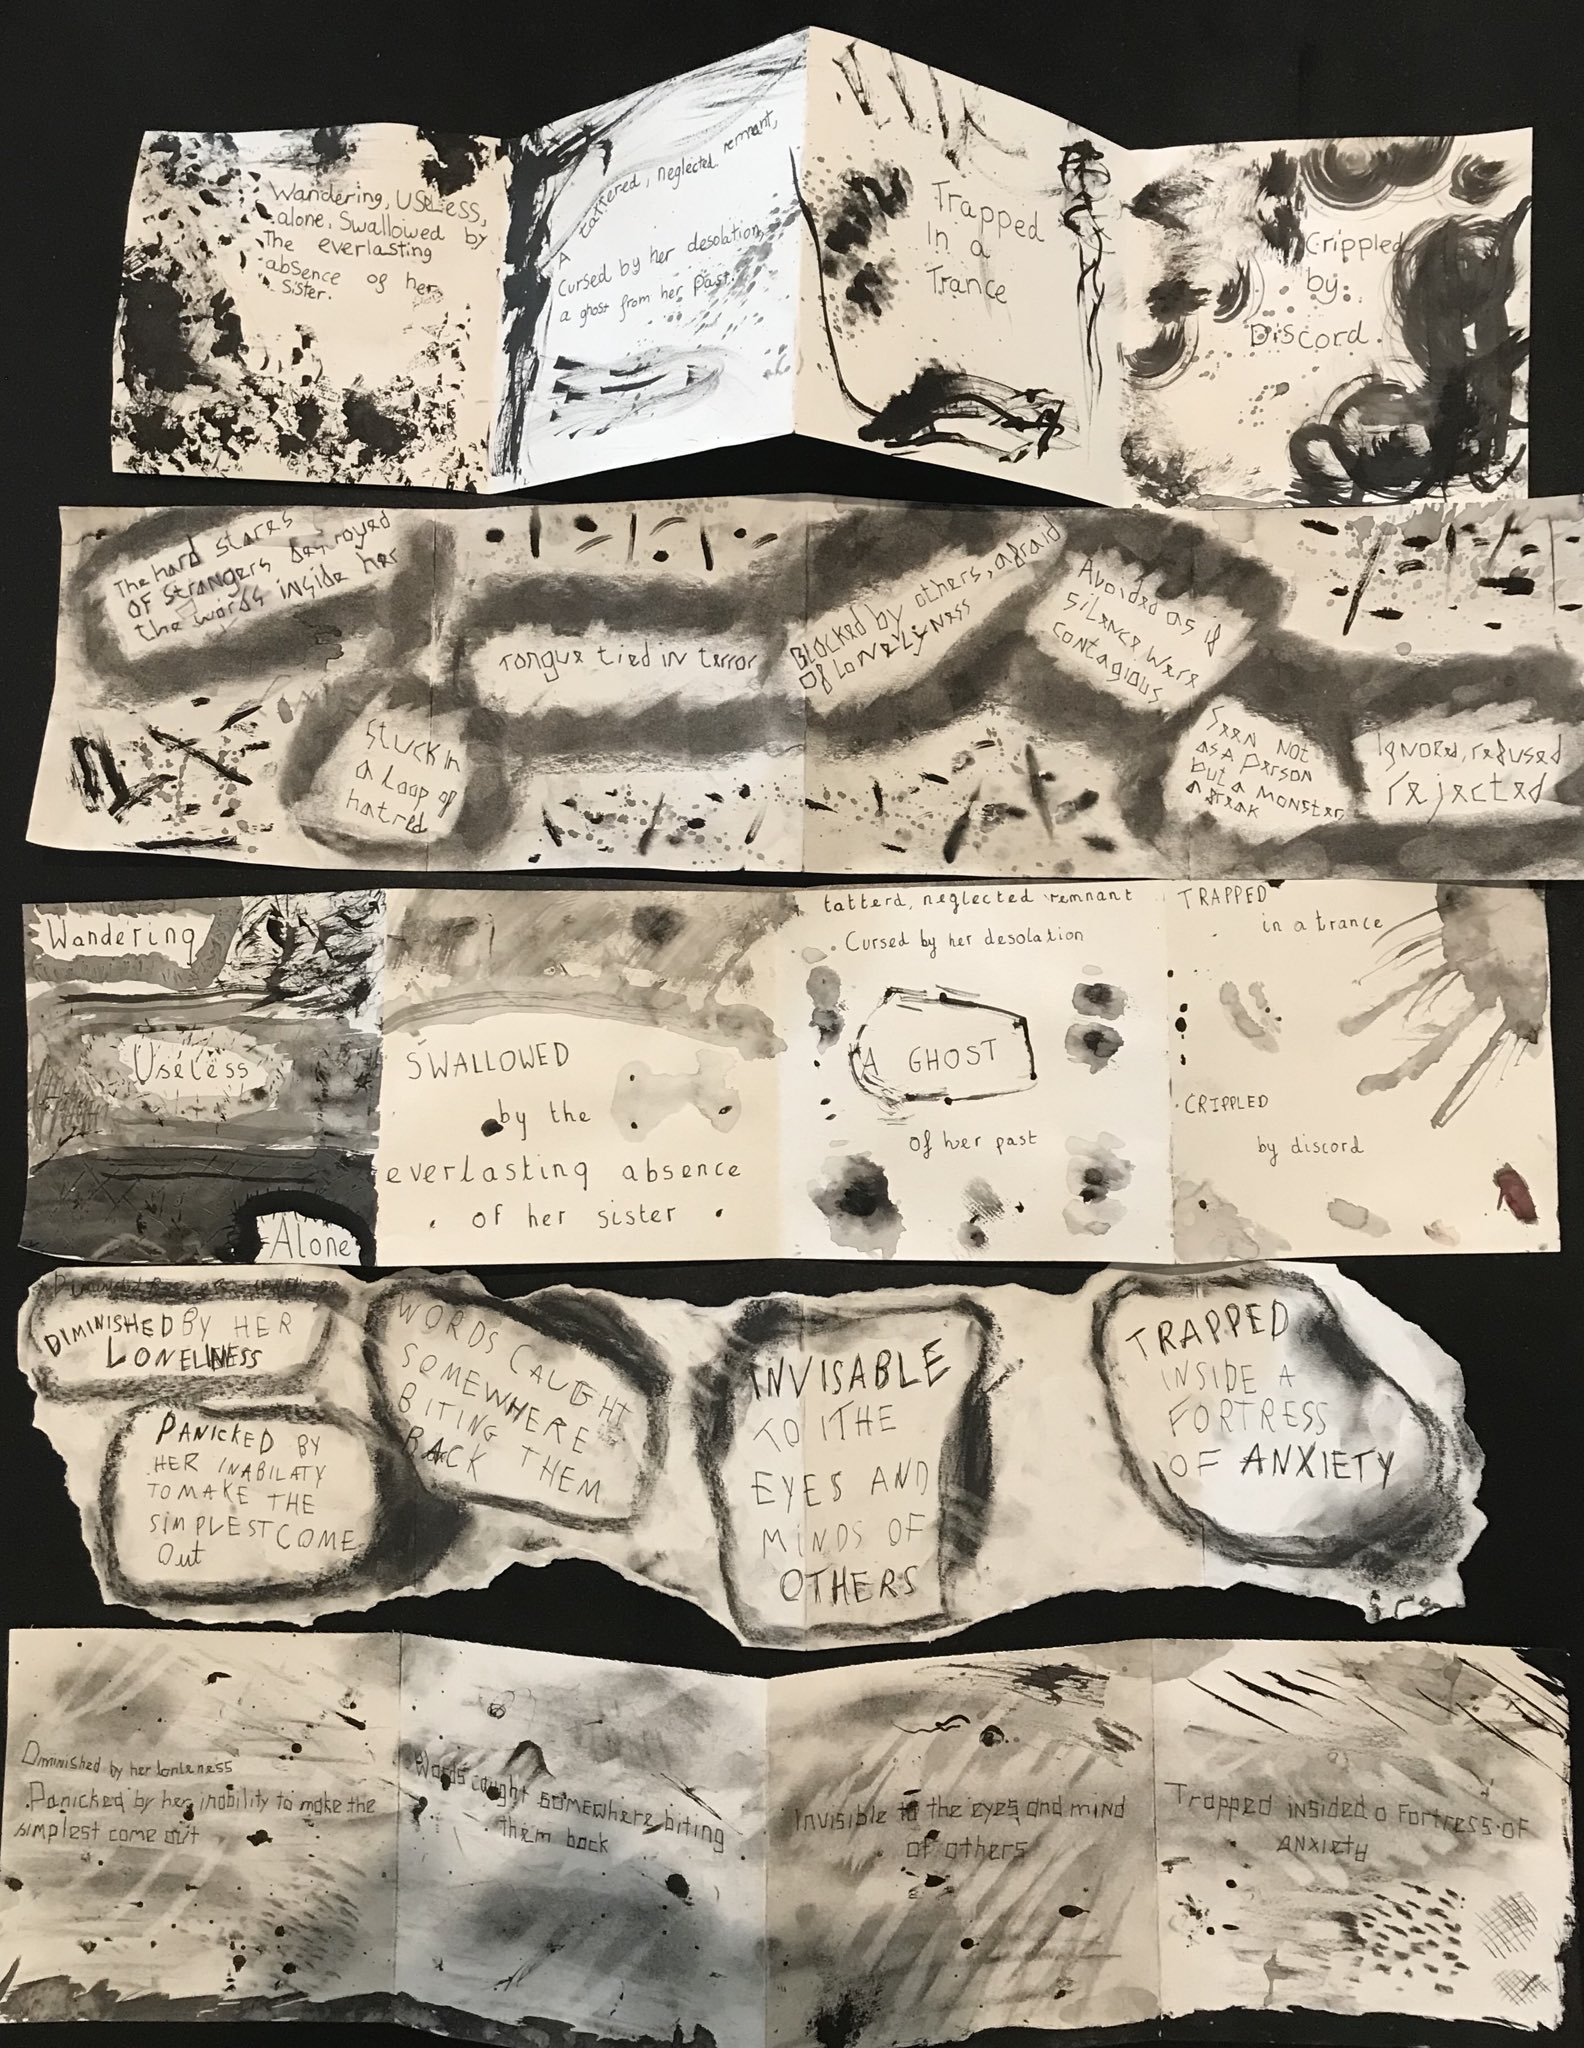 Wandering, USELESS,
alone. Swallowed by
The everlasting
absence of her
sister.
A
tattered, neglected remnant,
Cursed by her desolation,
a ghost from her past.
Trapped
In a
Trance
Crippled
by
Discord.
The hard stares
OF STRANGERS destroyed
the words inside her
Stuck in
a Loop of
hatred
Tongue tied in terror
Blocked by others, afraid
Of LoneLyness
Avoided as if
silence were
contagious
Seen not
as a Person
but a monster
a freak
Ignored, refused
rejected
Wandering
Useless
Alone
SWALLOWED
by the
everlasting absence
of her sister
tatterd, neglected remnant
Cursed by her desolation
A GHOST
of her past
TRAPPED
in a trance
CRIPPLED
by discord
DIMINISHED BY HER
LONELINESS
PANICKED BY
HER INABILATY
TO MAKE THE
SIMPLEST COME
Out
WORDS CAUGHT
SOMEWHERE
BITING THEM
BACK
INVISABLE
TO THE
EYES AND
MINDS OF
OTHERS
TRAPPED
INSIDE A
FORTRESS
OF ANXIETY
Diminished by her lonleness
Panicked by her inobility to make the
simplest come out
Words caught somewhere biting
them back
Invisible to the eyes and mind
of others
Trapped insided a Fortress of
anxiety